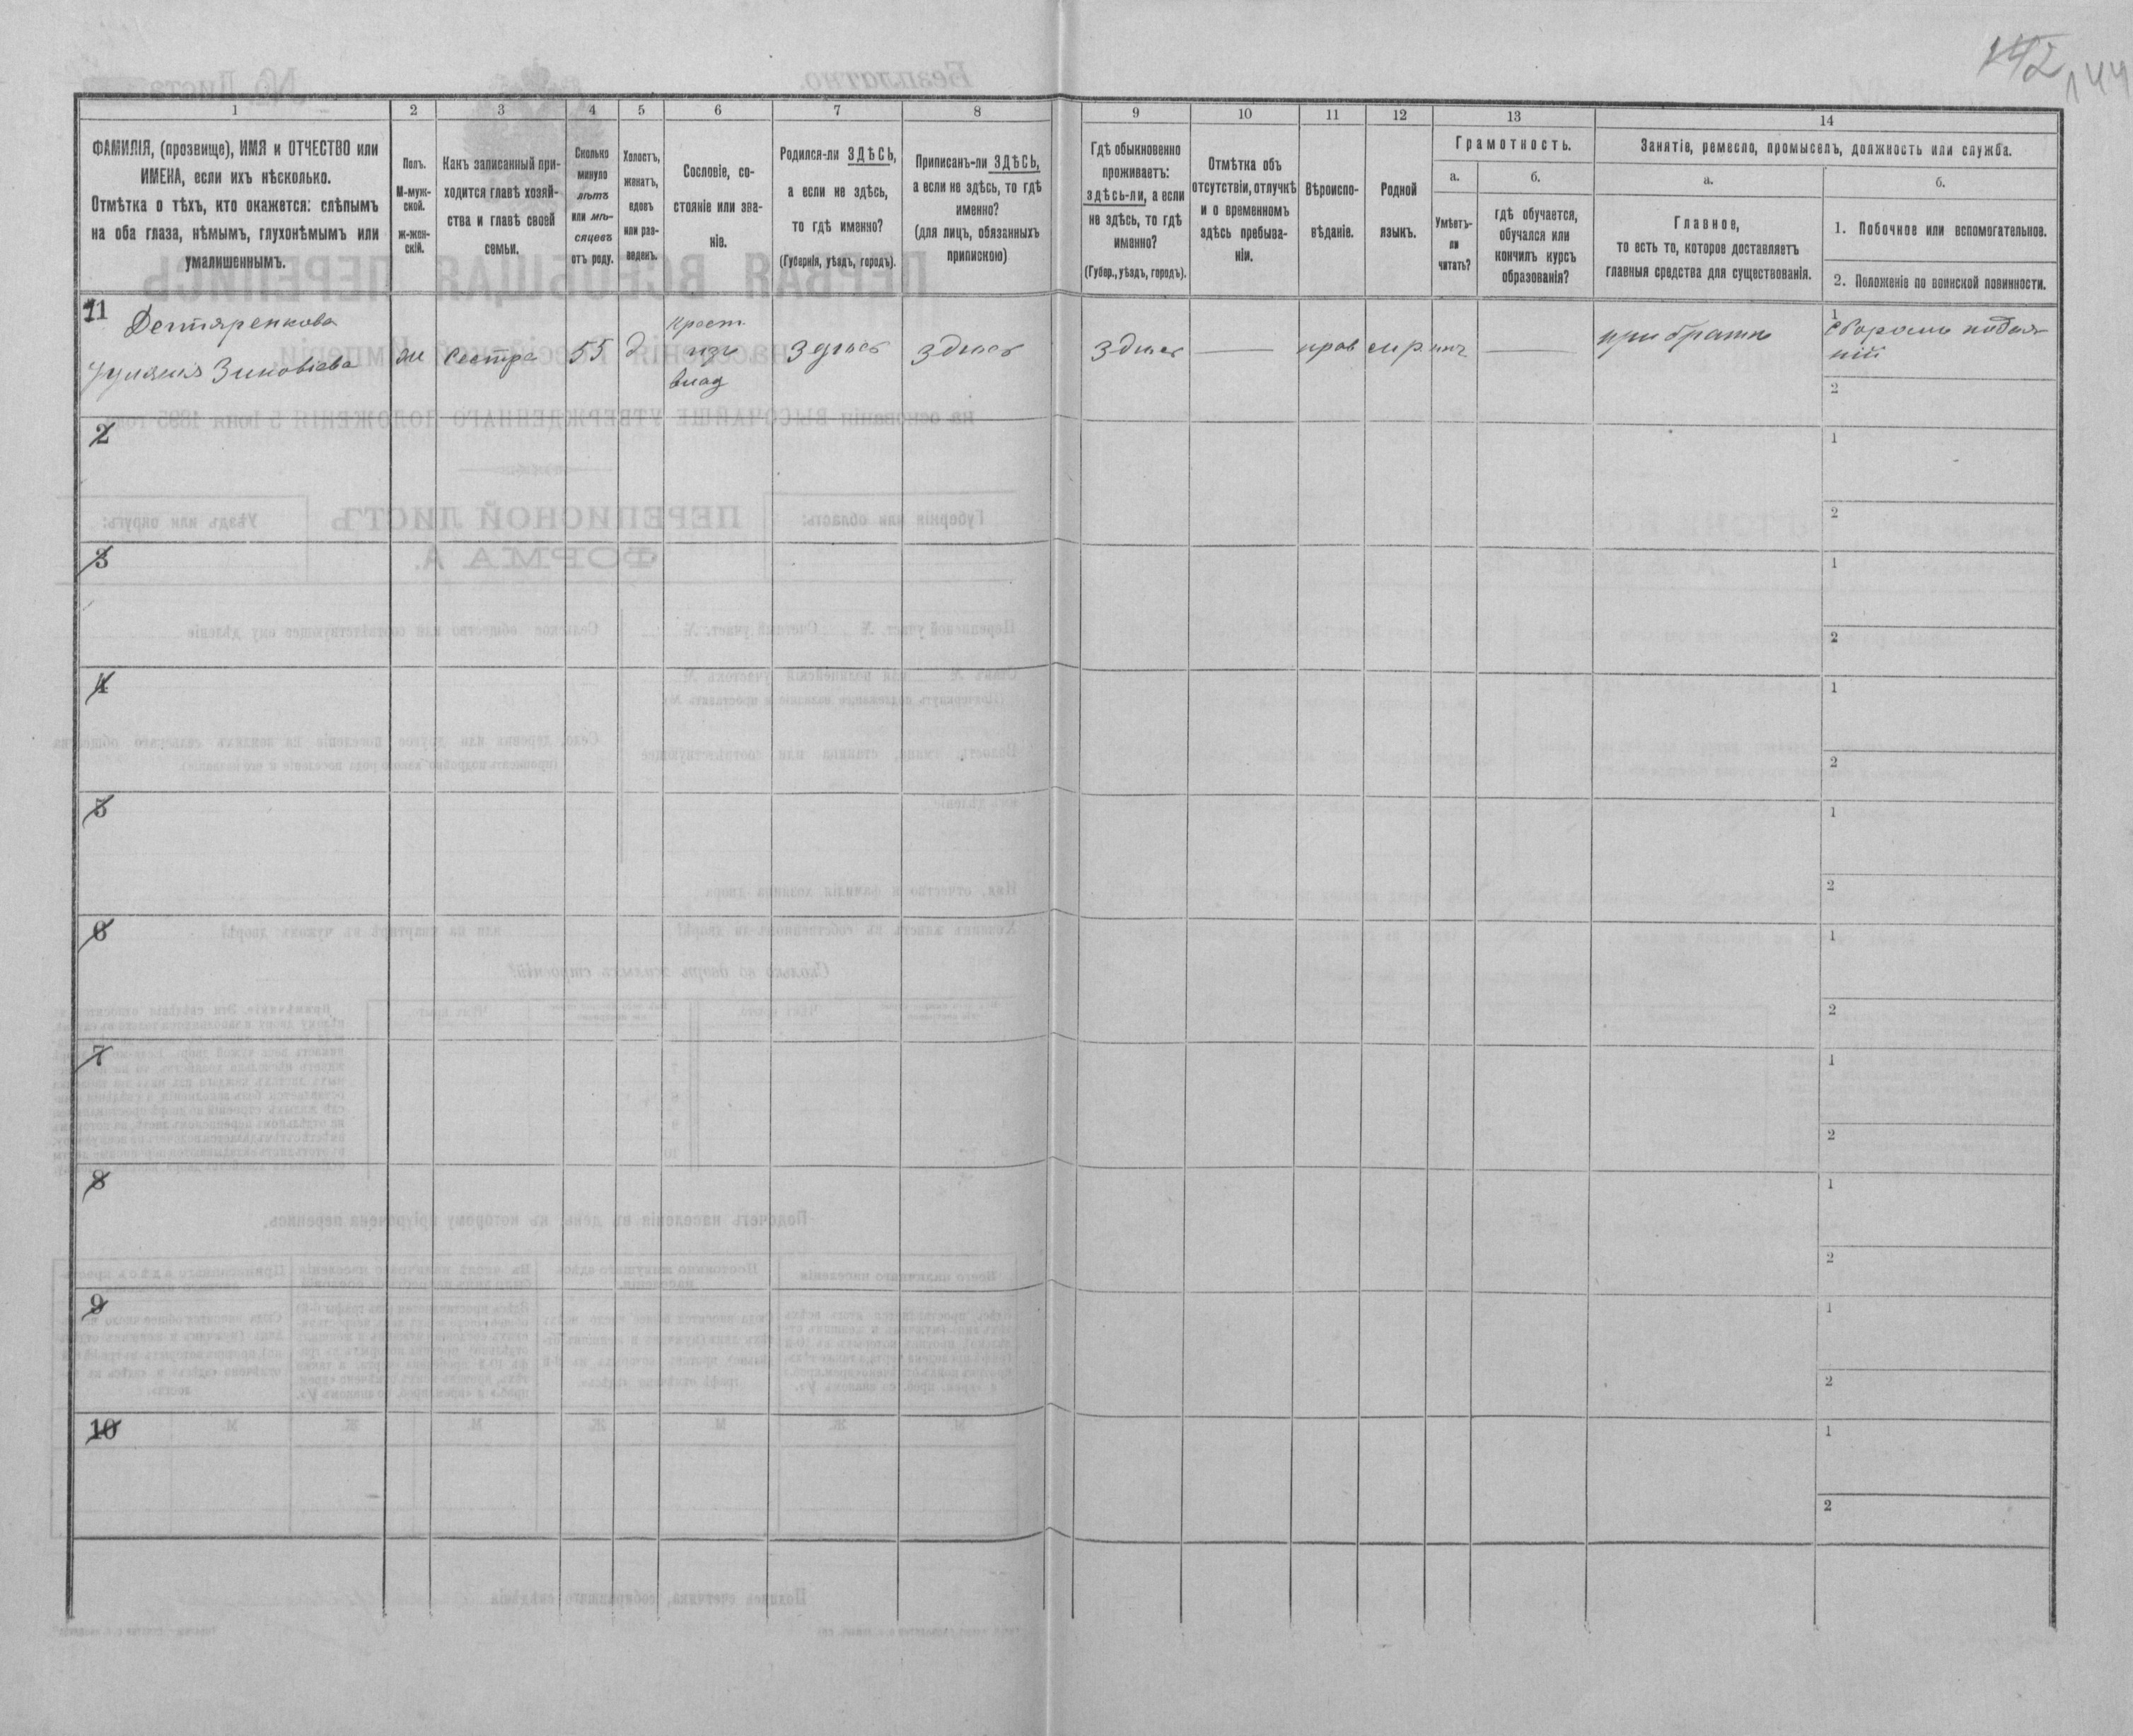 142
144
1
ФАМИЛІЯ, (прозвище), ИМЯ и ОТЧЕСТВО или
ИМЕНА, если ихъ нѣсколько.
Отмѣтка о тѣхъ, кто окажется: слѣпымъ
на оба глаза, нѣмымъ, глухонѣмымъ или
умалишеннымъ.
2
Полъ.
М-муж-
ской.
ж-жен-
скій.
3
Какъ записанный при-
ходится главѣ хозяй-
ства и главѣ своей
семьи.
4
Сколько
минуло
лѣтъ
или мѣ-
сяцевъ
отъ роду.
5
Холостъ,
женатъ,
вдовъ
или раз-
веденъ.
6
Сословіе, со-
стояніе или зва-
ніе.
7
Родился-ли ЗДѢСЬ,
а если не здѣсь,
то гдѣ именно?
(Губернія, уѣздъ, городъ).
8
Приписанъ-ли ЗДѢСЬ,
а если не здѣсь, то гдѣ
именно?
(для лицъ, обязанныхъ
припискою)
9
Гдѣ обыкновенно
проживаетъ:
здѣсь-ли, а если
не здѣсь, то гдѣ
именно?
(Губер., уѣздъ, городъ).
10
Отмѣтка объ
отсутствіи, отлучкѣ
и о временномъ
здѣсь пребыва-
ніи.
11
Вѣроиспо-
вѣданіе.
12
Родной
языкъ.
13
Грамотность.
а.
Умѣетъ-
ли
читать?
б.
гдѣ обучается,
обучался или
кончилъ курсъ
образованія?
14
Занятіе, ремесло, промыселъ, должность или служба.
а.
Главное,
то есть то, которое доставляетъ
главныя средства для существованія.
б.
1. Побочное или вспомогательное.
2. Положеніе по воинской повинности.
11
Дегтяренкова
Зиновіева
ж
сестра
55
д
крест.
изъ
влад
Здѣсь
здѣсь
здѣсь
прав
мр
при братѣ
1
сборомъ подая-
ній
2
2
1
2
3
1
2
4
1
2
5
1
2
6
1
2
7
1
2
8
1
2
9
1
2
10
1
2